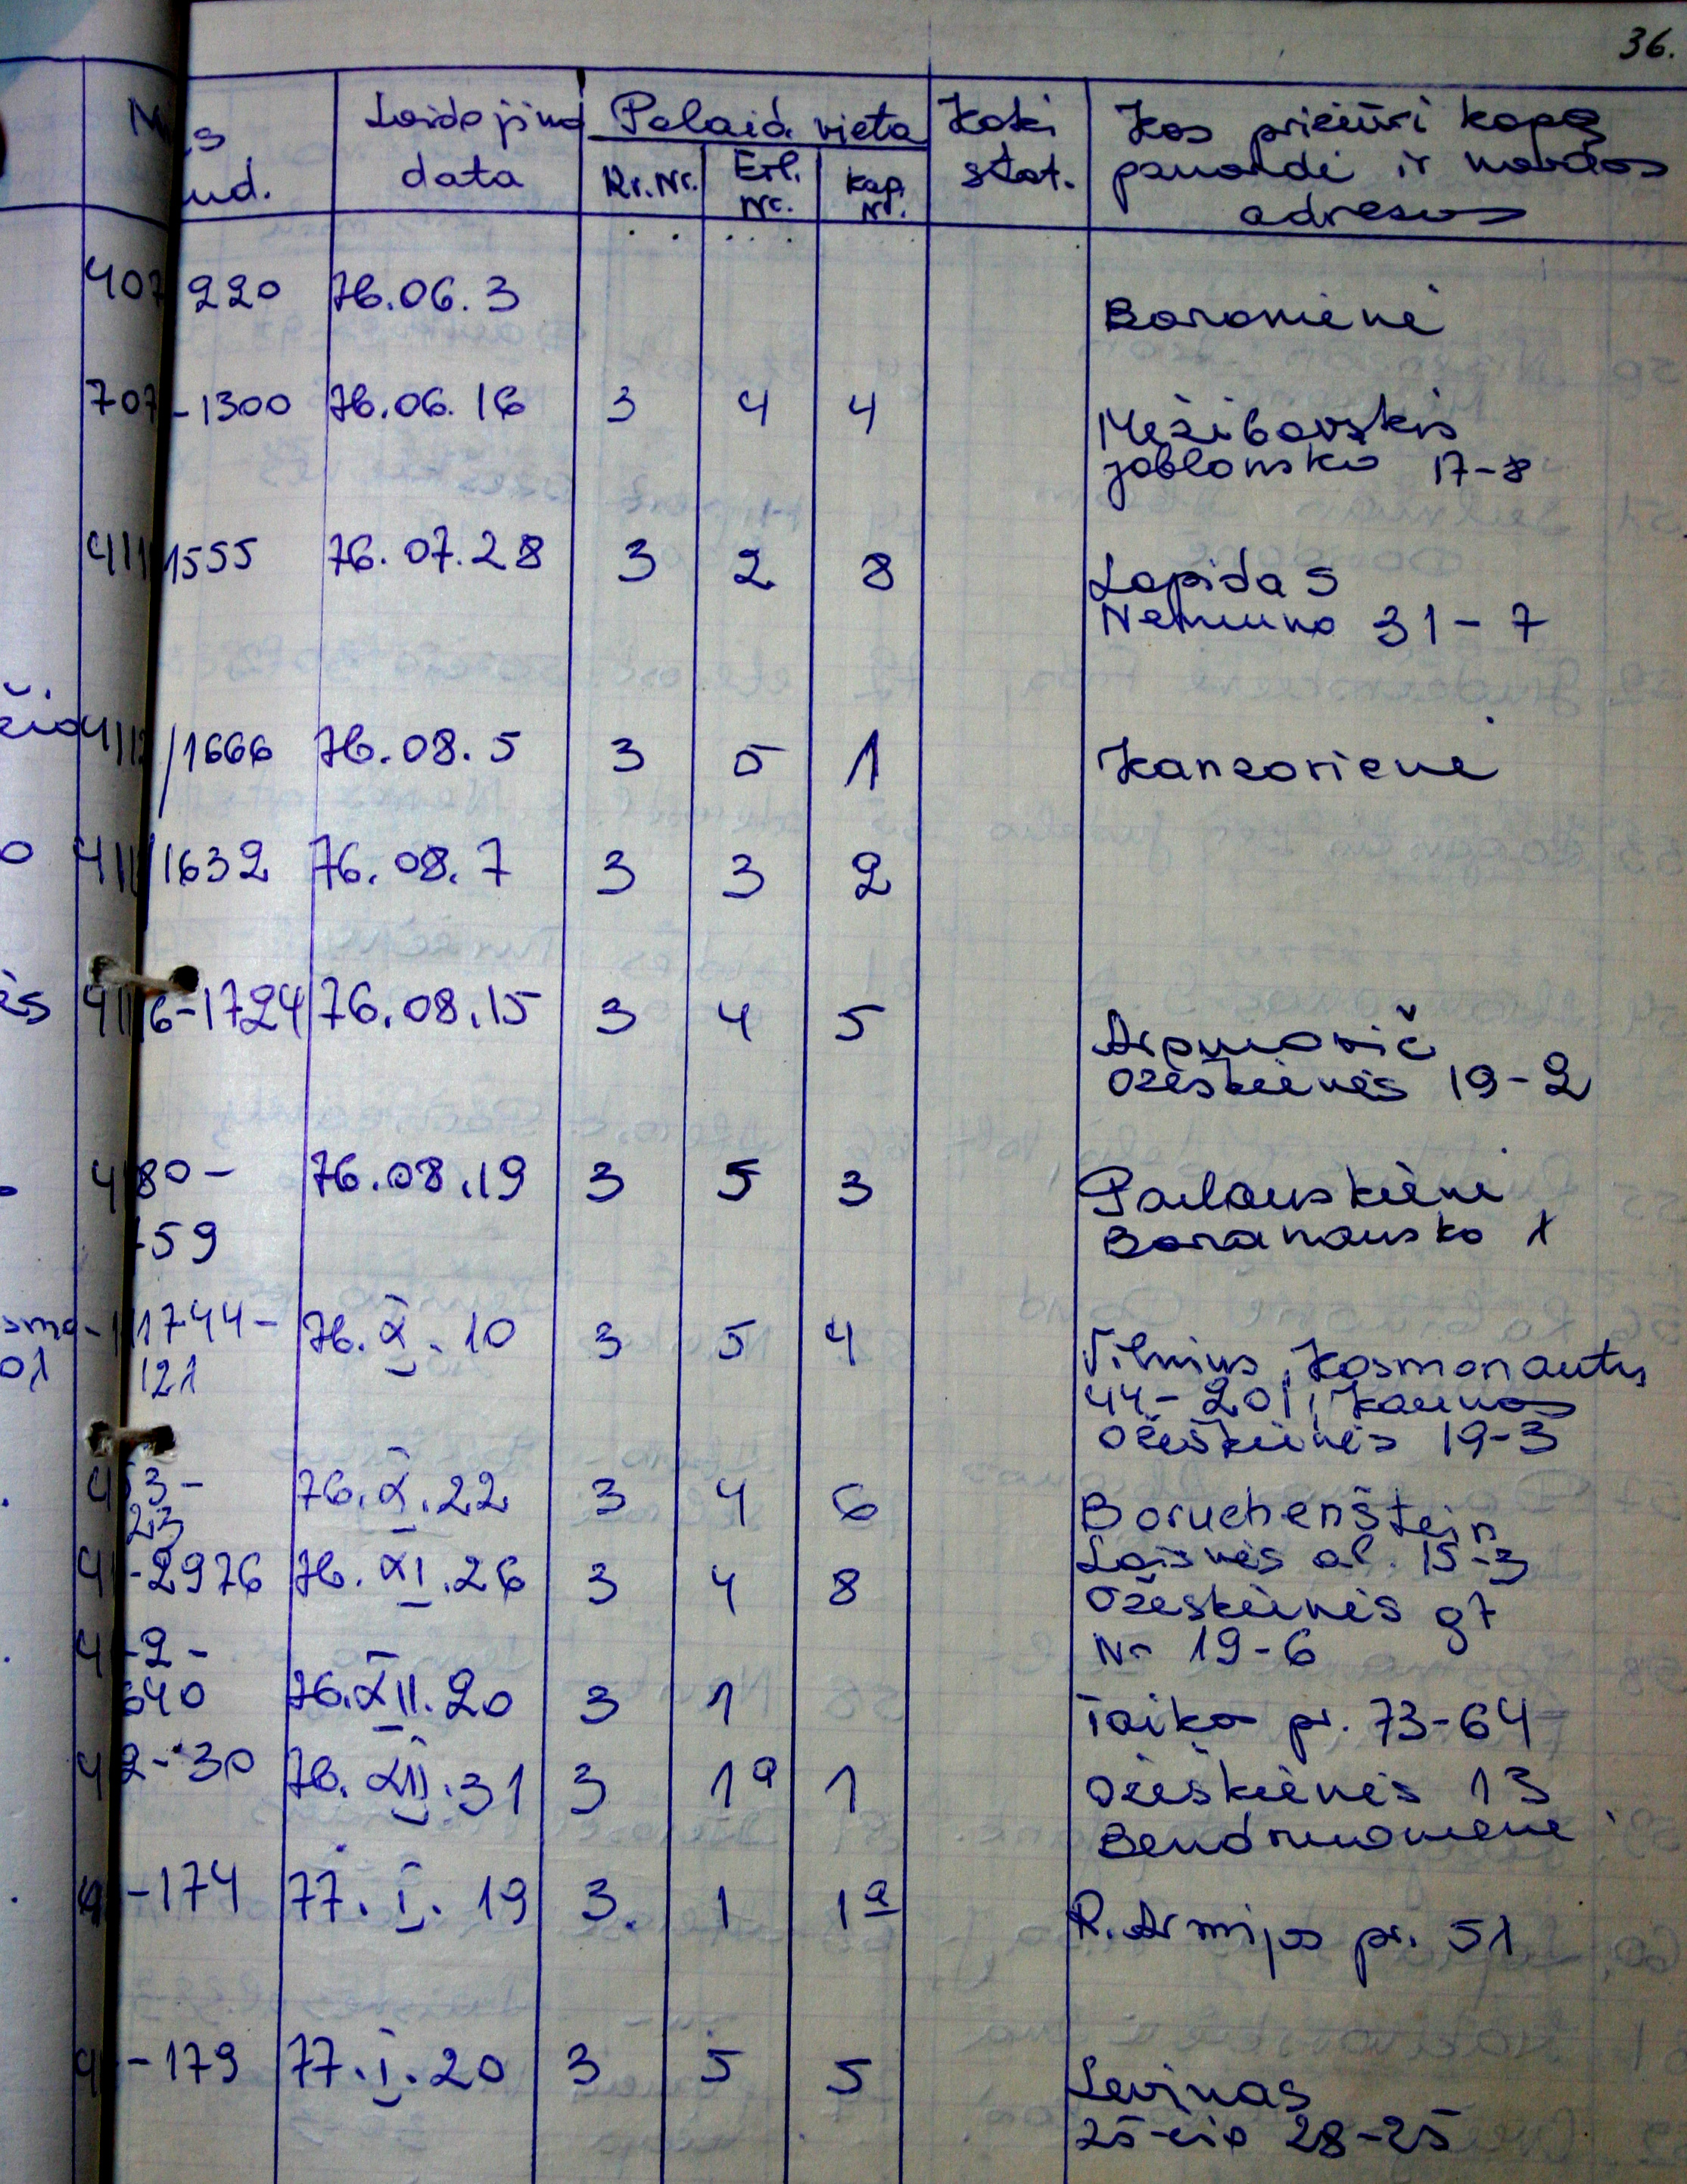 36.
Laidojimo data Palaid. vieta Koki stat. Kas prižiūri kapą
Kr.Nr. Eil. Nr. kap. Nr. pavardė ir namas
ud. adresas
407 220 76.06.3 Baronienė
707 -1300 76.06.16 3 4 4 Mėžibovskis
Jablonskio 17-8
411 1555 76.07.28 3 2 8 Lapidas
Nemuno 31-7
/1666 76.08.5 3 5 1 Kanzorienė
411 1632 76.08.7 3 3 2
6-1724 76.08.15 3 4 5
Ožeškienės 19-2
80- 76.08.19 3 5 3 Parlauskienė
59 Baranausko 1
1744- 76.X.10 3 5 4 Vilnius, Kosmonautų
121 44-201, Kaunas
Ožeškienės 19-3
3- 76.X.22 3 4 6 Boruchenštein
23 Laisvės al. 15-3
-2976 76.XI.26 3 4 8 Ožeškienės g7
-2- Nr 19-6
640 76.XII.20 3 1 Taikos pr. 73-64
2-30 76.XII.31 3 1a 1 Ožeškienės 13
Bendruomenė
-174 77.I.19 3. 1 1a R. Armijos pr. 51
-179 77.I.20 3 5 5 Levinas
25-čio 28-25